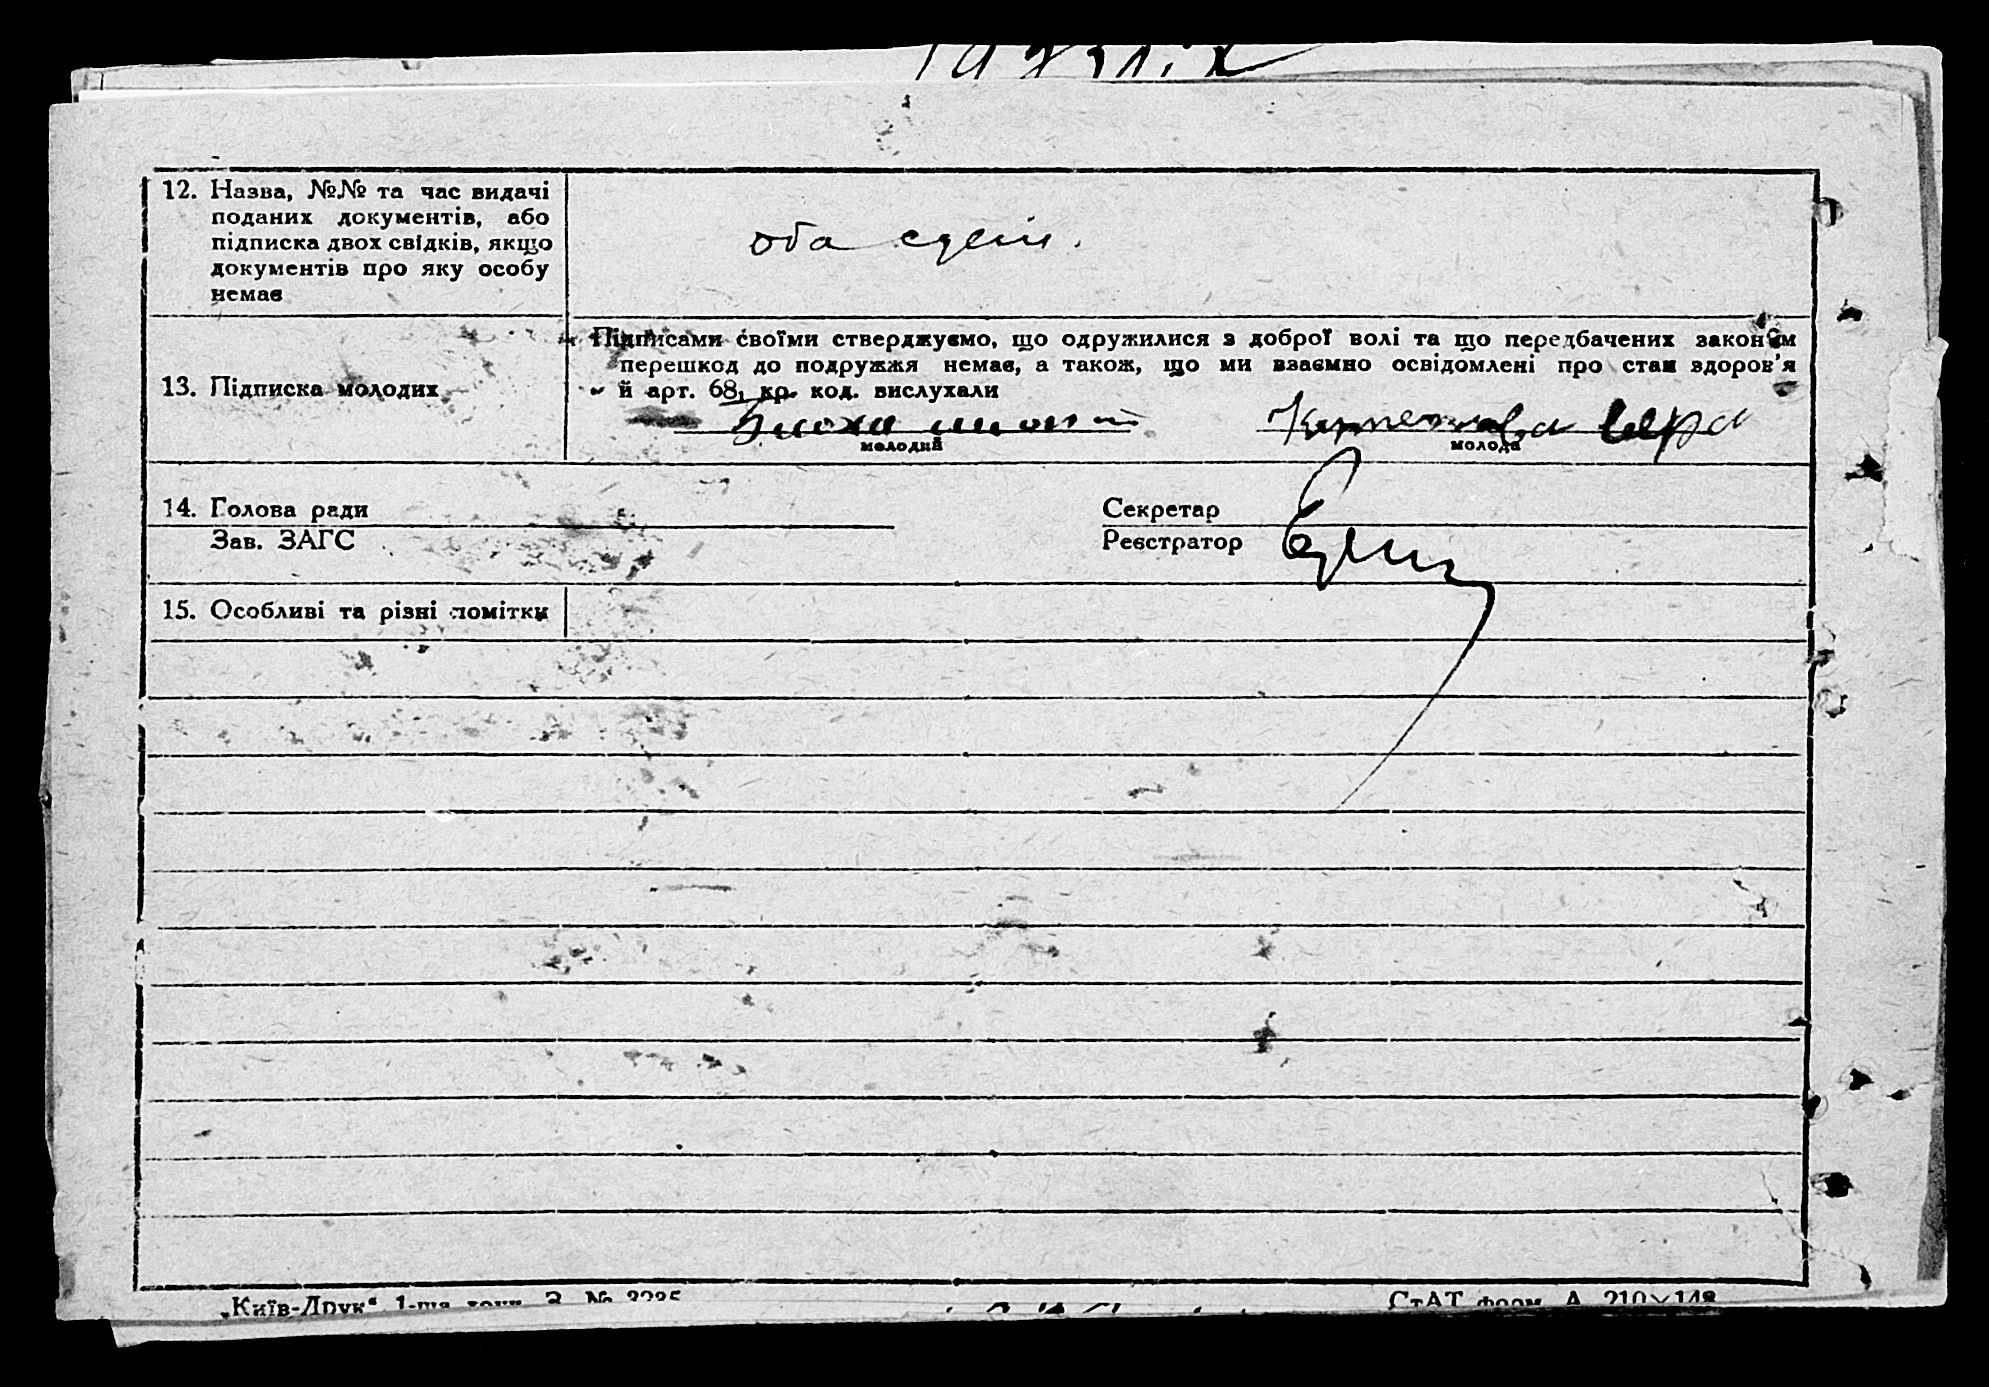 12. Назва, №№ та час видачі
поданих документів, або
підписка двох свідків, якщо
документів про яку особу
немає
оба
13. Підписка молодих
Підписами своїми стверджуємо, що одружилися з доброї волі та що передбачених законом
перешкод до подружжя немає, а також, що ми взаємно освідомлені про стан здоров'я
й арт. 68, кр. код. вислухали
молодий
Вера
молода
14. Голова ради
Секретар
Зав. ЗАГС
Реєстратор
15. Особливі та різні помітки
„Київ-Друк“ 1-ша З. № 3235
СтАТ форм. А 210×148